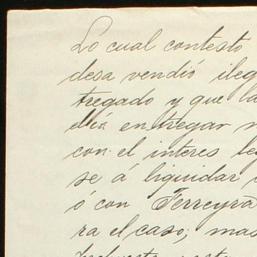 Lo cual contesto
desa vendió ileg
tregado y que la
día entregar
con el interes le
se á liquidar
ó con Ferreyra
ra el caso; mas